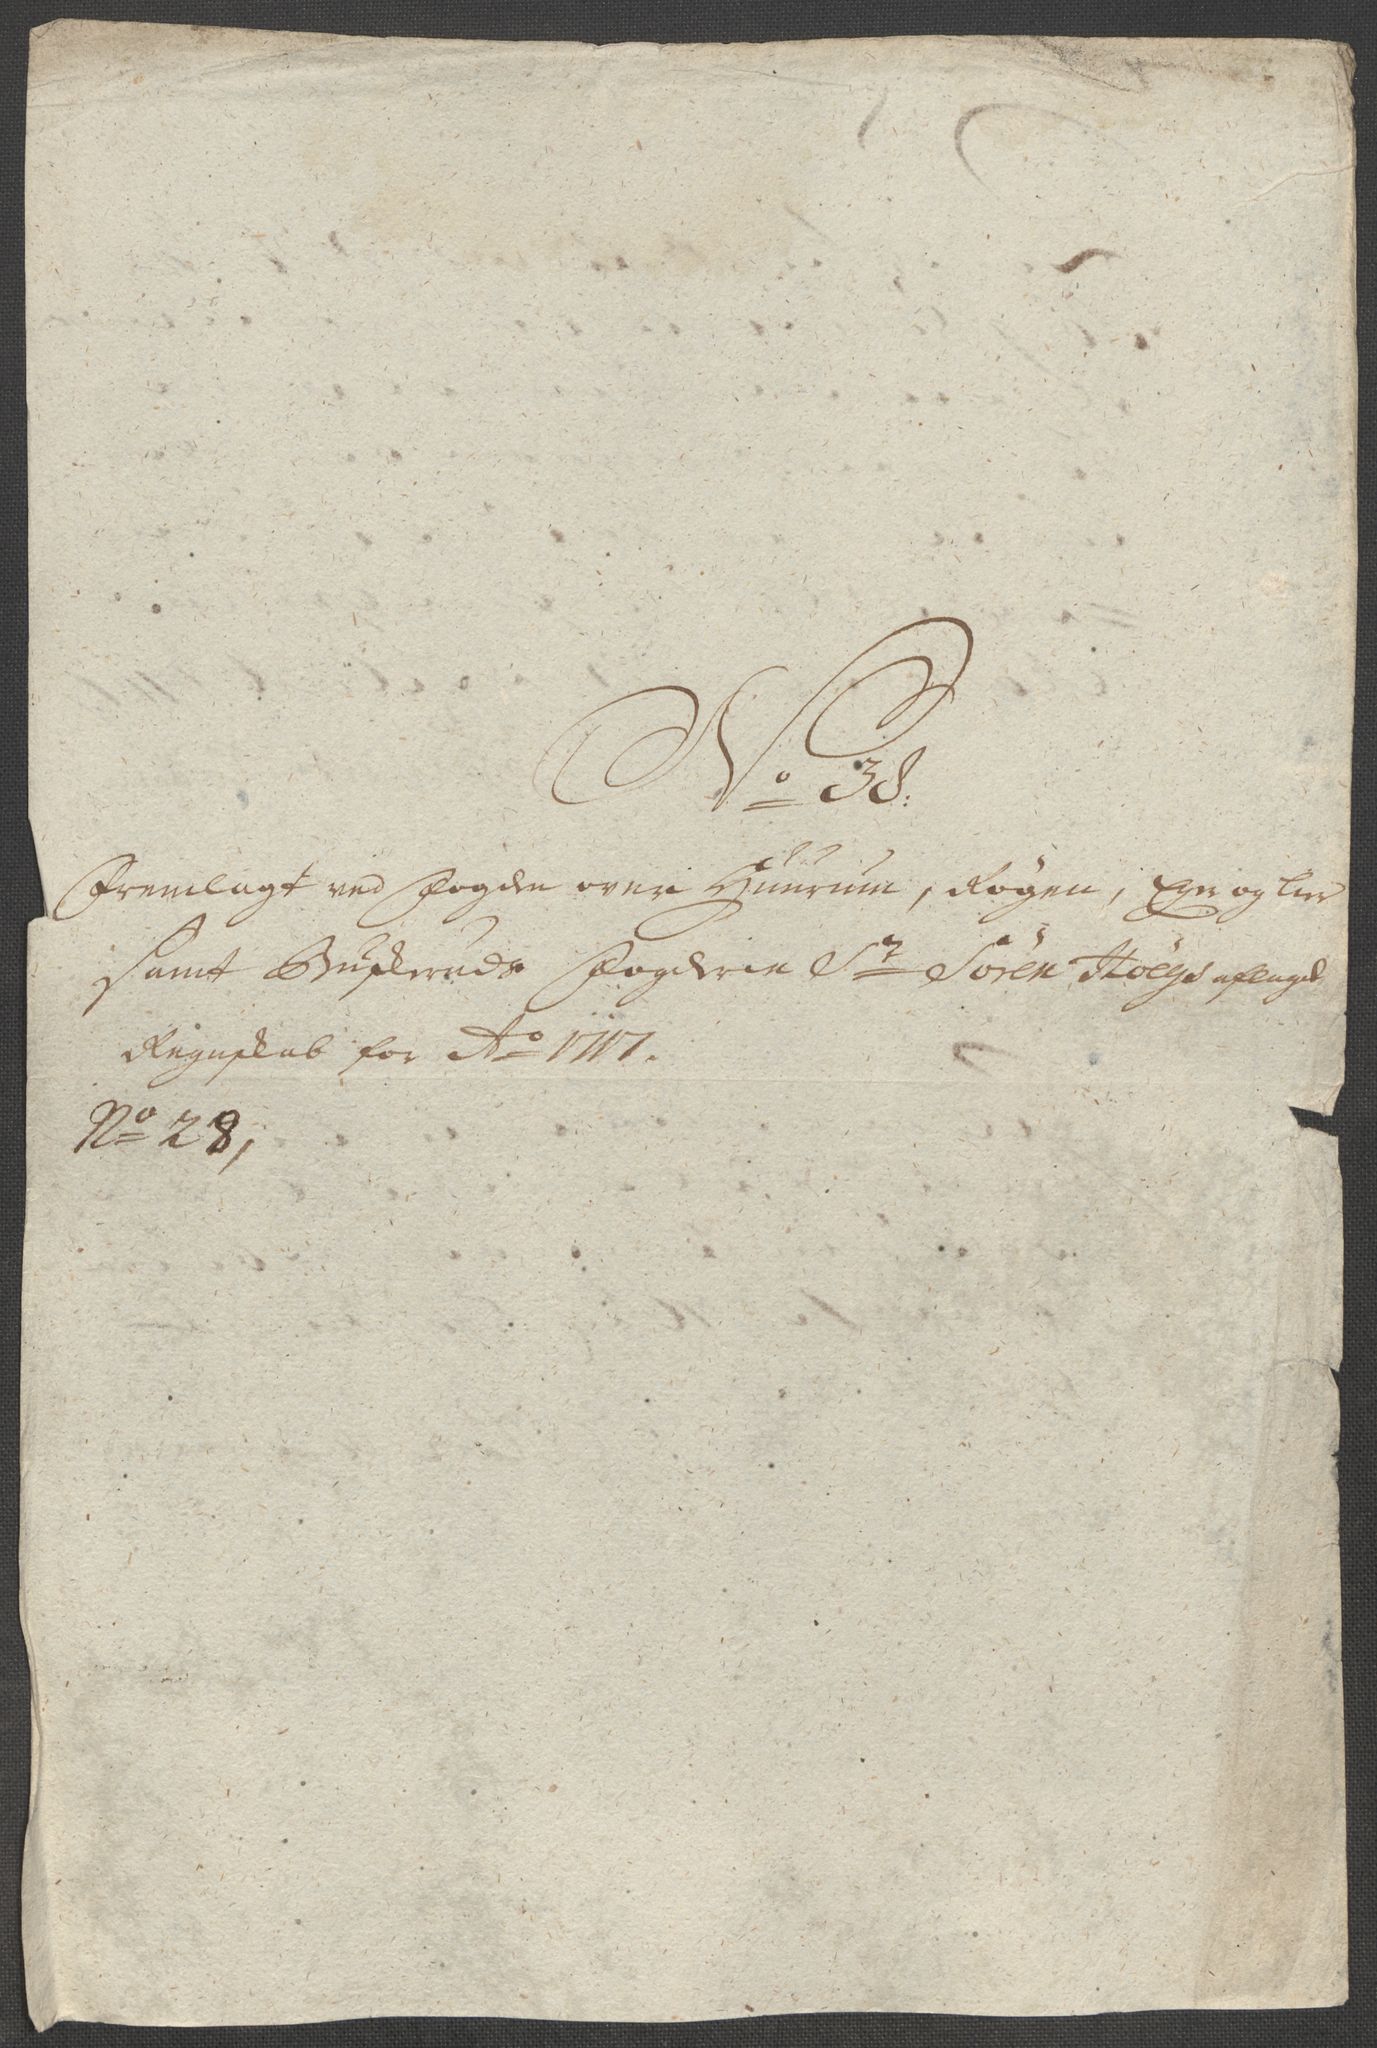 No 38.
Fremlagt ved Fogden over Huurum, Røgen, Eger og Lier
samt Buskeruds Fogderie Sr Søren Høegs aflagde
Regnskab for Ao 1717.
No 28,